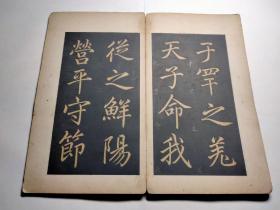 于罕之羌
天子命我
從之鮮陽
營平守節